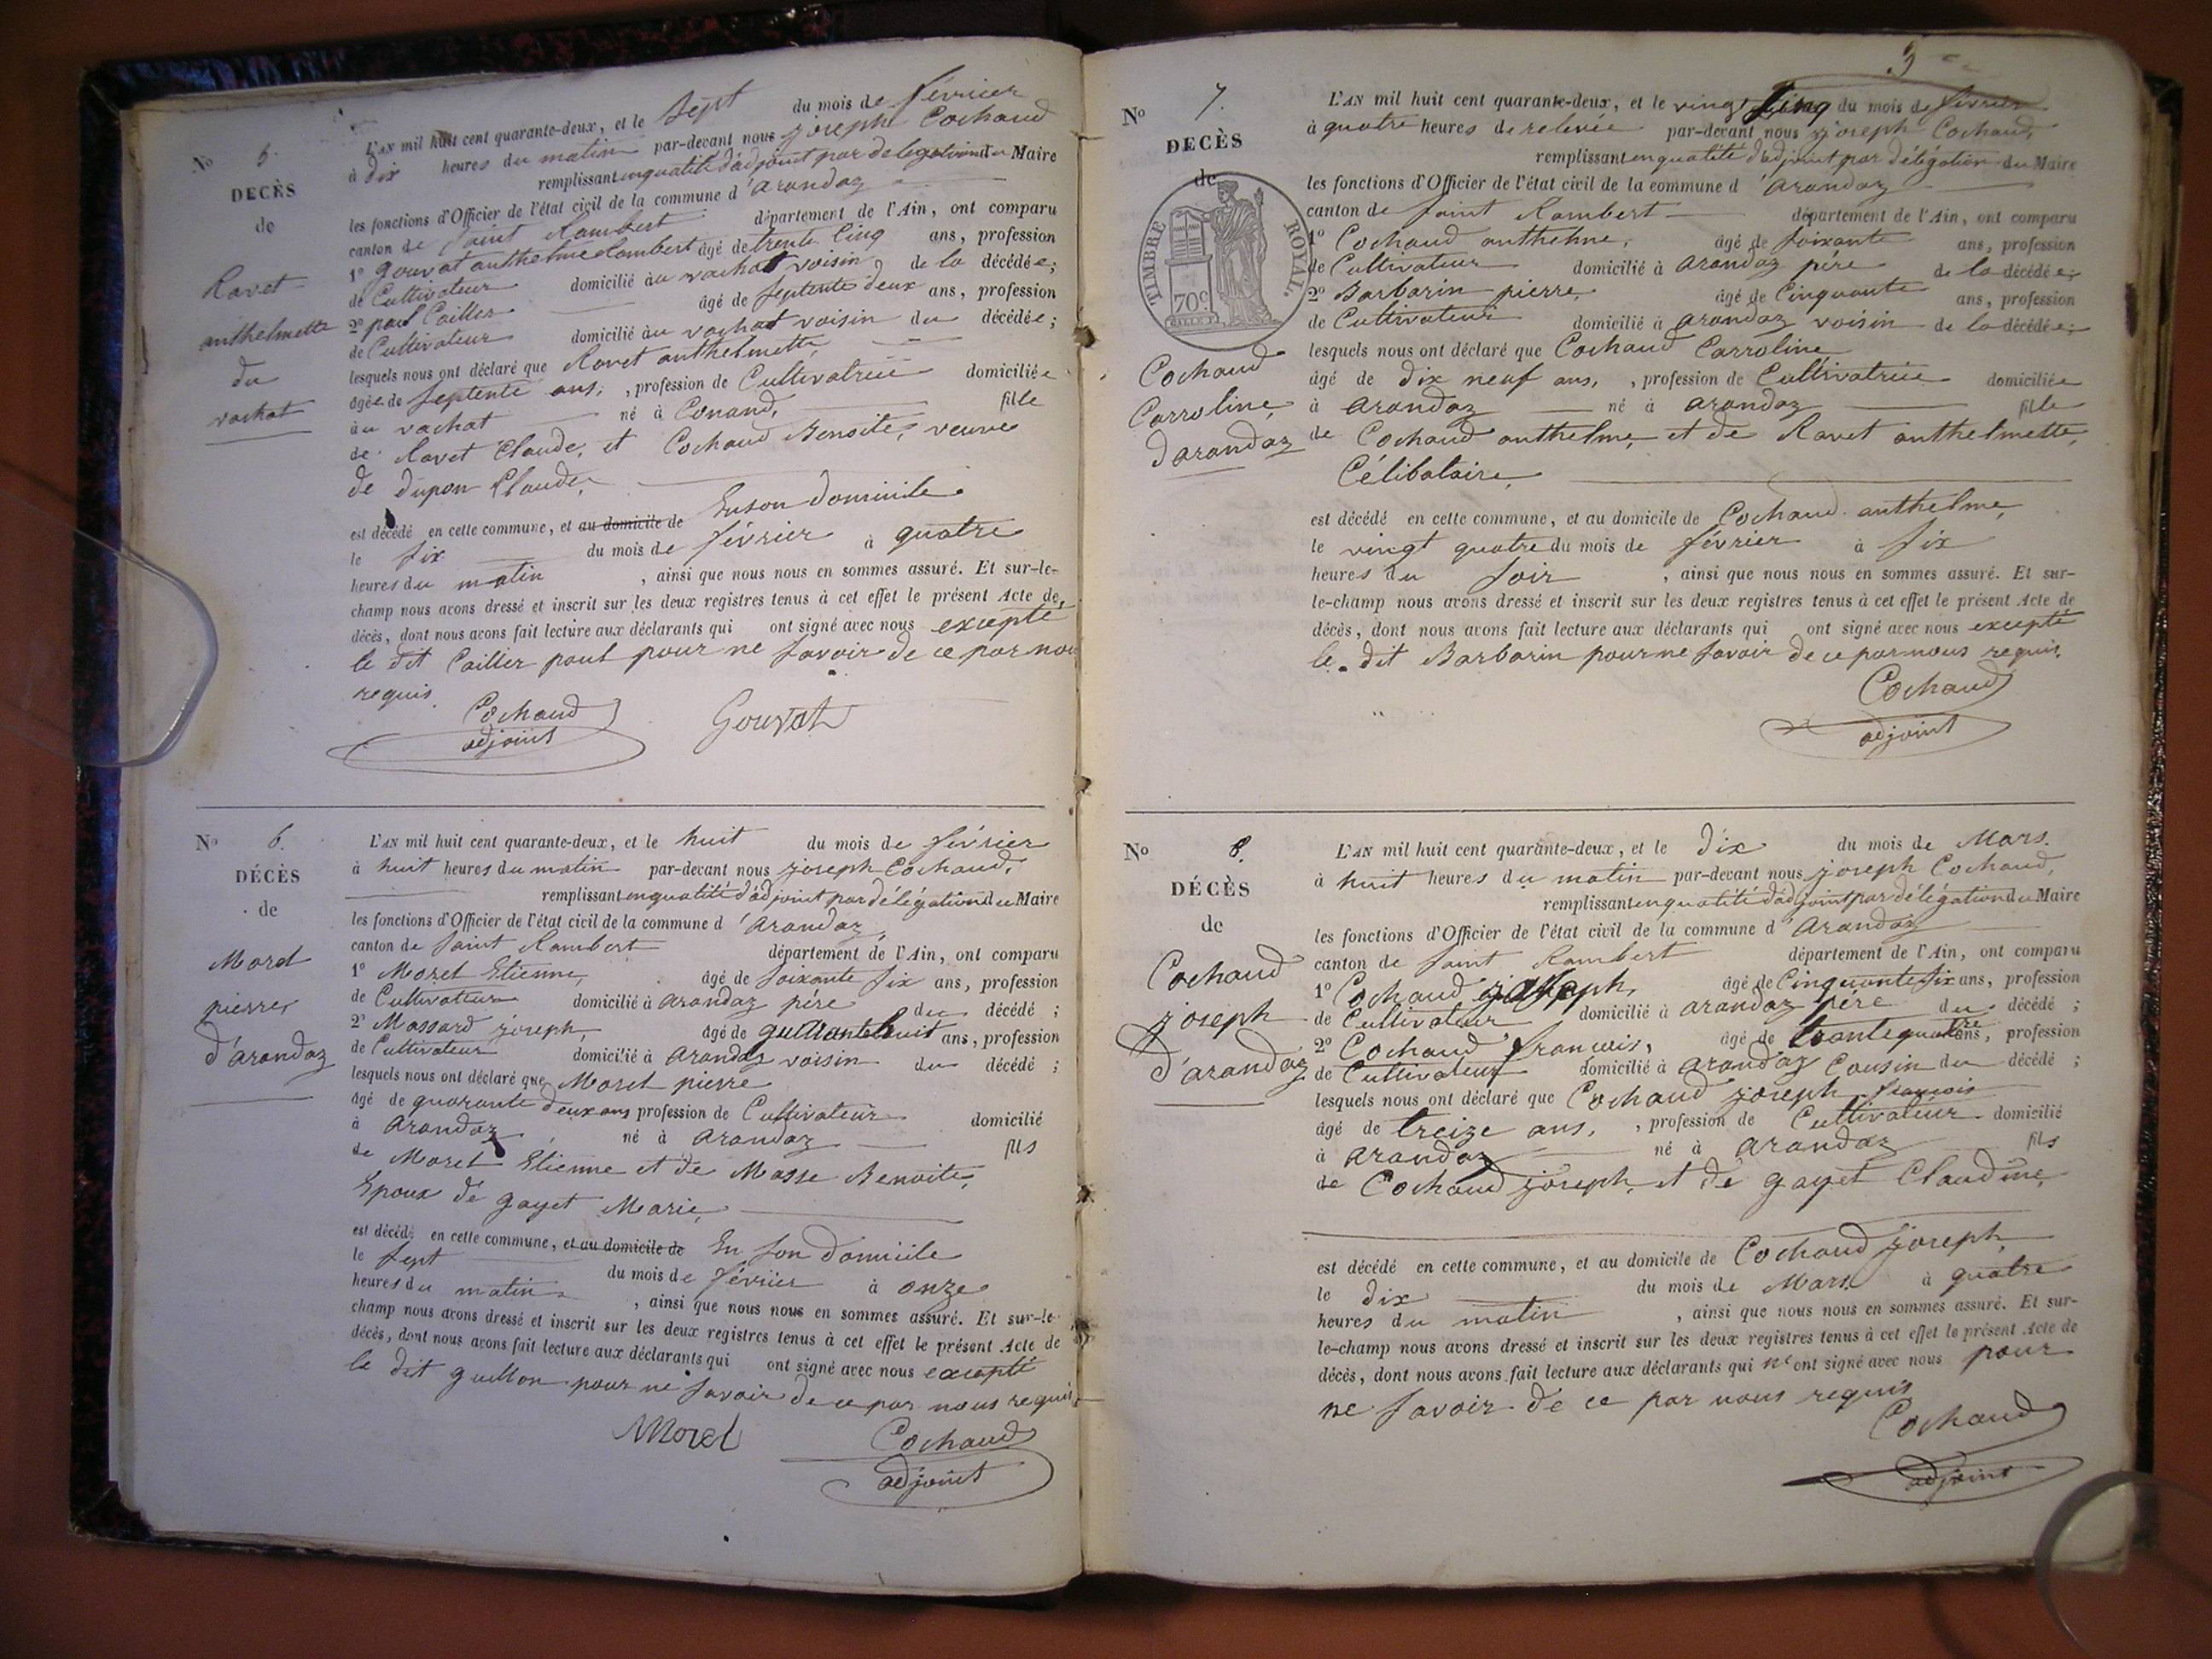 No 5.
DECÈS
de
Ravet
anthelmette
du
vachat
L'AN mil huit cent quarante-deux, et le Sept du mois de février
à dix heures du matin par-devant nous joseph Cochaud
remplissant en qualité d'adjoint par délégation du Maire
les fonctions d'Officier de l'état civil de la commune d'arandaz
canton de Saint Rambert département de l'Ain, ont comparu
1º gouvat anthelme Lambert âgé de trente Cinq ans, profession
de Cultivateur domicilié àu vachat voisin de la décédée;
2º paul Cailler âgé de Septente deux ans, profession
de Cultivateur domicilié àu vachat voisin du décédée;
lesquels nous ont déclaré que Ravet anthelmette,
agée de Septente ans, , profession de Cultivatrice domiciliée
àu vachat né à Conand, fille
de Ravet Claude, et Cochaud Benoite, veuve
de dupon Claude,
est décédé en cette commune, et au domicile de En son domicile
le Six du mois de février à quatre
heures du matin , ainsi que nous nous en sommes assuré. Et sur-le-
champ nous avons dressé et inscrit sur les deux registres tenus à cet effet le présent Acte de
décès, dont nous avons fait lecture aux déclarants qui ont signé avec nous excepté
le dit Cailler paul pour ne Savoir de ce par nous
requis.
Cochaud
adjoint
Gouvat
No 6.
DÉCÈS
de
Morel
pierre,
d'arandaz
L'AN mil huit cent quarante-deux, et le huit du mois de février
à huit heures du matin par-devant nous joseph Cochaud,
remplissant en qualité d'adjoint par délégation du Maire
les fonctions d'Officier de l'état civil de la commune d'arandaz,
canton de Saint Rambert département de l'Ain, ont comparu
1º Morel Etienne, âgé de Soixante Six ans, profession
de Cultivateur domicilié à arandaz père du décédé ;
2º Massard joseph, âgé de quarante huit ans, profession
de Cultivateur domicilié à arandaz voisin du décédé ;
lesquels nous ont déclaré que Morel pierre
âgé de quarante deux ans profession de Cultivateur domicilié
à arandaz, né à arandaz fils
de Morel Etienne et de Masse Benoite,
Epoux de gayet Marie,
est décédé en cette commune, et au domicile de En Son domicile
le Sept du mois de février à onze
heures du matin , ainsi que nous nous en sommes assuré. Et sur-le-
champ nous avons dressé et inscrit sur les deux registres tenus à cet effet le présent Acte de
décès, dont nous avons fait lecture aux déclarants qui ont signé avec nous excepté
le dit pour ne Savoir de ce par nous requis
Morel
Cochaud
adjoint
3
No 7.
DECÈS
de
TIMBRE ROYAL.
70c
Cochaud
Carroline,
d'arandaz
L'AN mil huit cent quarante-deux, et le vingt Cinq du mois de février
à quatre heures de relevée par-devant nous joseph Cochaud,
remplissant en qualité d'adjoint par délégation du Maire
les fonctions d'Officier de l'état civil de la commune d'arandaz
canton de Saint Rambert département de l'Ain, ont comparu
1º Cochaud anthelme, âgé de Soixante ans, profession
de Cultivateur domicilié à arandaz père de la décédée;
2º Barbarin pierre, âgé de Cinquante ans, profession
de Cultivateur domicilié à arandaz voisin de la décédée;
lesquels nous ont déclaré que Cochaud Carroline
âgé de dix neuf ans, , profession de Cultivatrice domiciliée
à arandaz né à arandaz fille
de Cochaud anthelme, et de Ravet anthelmette,
Célibataire,
est décédé en cette commune, et au domicile de Cochaud anthelme,
le vingt quatre du mois de février à Six
heures du Soir , ainsi que nous nous en sommes assuré. Et sur-
le-champ nous avons dressé et inscrit sur les deux registres tenus à cet effet le présent Acte de
décès, dont nous avons fait lecture aux déclarants qui ont signé avec nous excepté
le dit Barbarin pour ne Savoir de ce par nous requis.
Cochaud
adjoint
No 8.
DÉCÈS
de
Cochaud
joseph
d'arandaz
L'AN mil huit cent quarante-deux, et le dix du mois de Mars.
à huit heures du matin par-devant nous joseph Cochaud,
remplissant en qualité d'adjoint par délégation du Maire
les fonctions d'Officier de l'état civil de la commune d'arandaz
canton de Saint Rambert département de l'Ain, ont comparu
1º Cochaud joseph, âgé de Cinquante Six ans, profession
de Cultivateur domicilié à arandaz père du décédé ;
2º Cochaud francois, âgé de trante quatre ans, profession
de Cultivateur domicilié à arandaz Cousin du décédé ;
lesquels nous ont déclaré que Cochaud joseph francois
âgé de treize ans, , profession de Cultivateur domicilié
à arandaz né à arandaz fils
de Cochaud joseph, et de gayet Claudine,
est décédé en cette commune, et au domicile de Cochaud joseph,
le dix du mois de Mars à quatre
heures du matin , ainsi que nous nous en sommes assuré. Et sur-
le-champ nous avons dressé et inscrit sur les deux registres tenus à cet effet le présent Acte de
décès, dont nous avons fait lecture aux déclarants qui n'ont signé avec nous pour
ne Savoir de ce par nous requis
Cochaud
adjoint